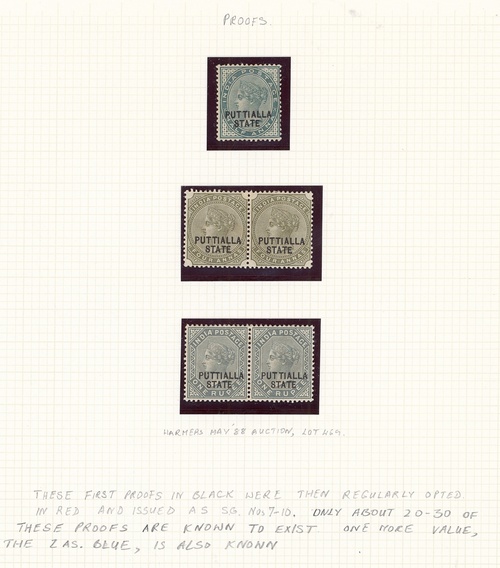 PROOFS.
INDIA POSTAGE
PUTTIALLA
STATE
HALF ANNA
INDIA POSTAGE INDIA POSTAGE
PUTTIALLA PUTTIALLA
STATE STATE
FOUR ANNAS FOUR ANNAS
INDIA POSTAGE INDIA POSTAGE
PUTTIALLA PUTTIALLA
STATE STATE
ONE RUPEE ONE RUPEE
HARMERS MAY '88 AUCTION, LOT 469.
THESE FIRST PROOFS IN BLACK WERE THEN REGULARLY OPTED.
IN RED AND ISSUED AS SG. Nos 7-10. ONLY ABOUT 20-30 OF
THESE PROOFS ARE KNOWN TO EXIST ONE MORE VALUE,
THE 2 AS. BLUE, IS ALSO KNOWN